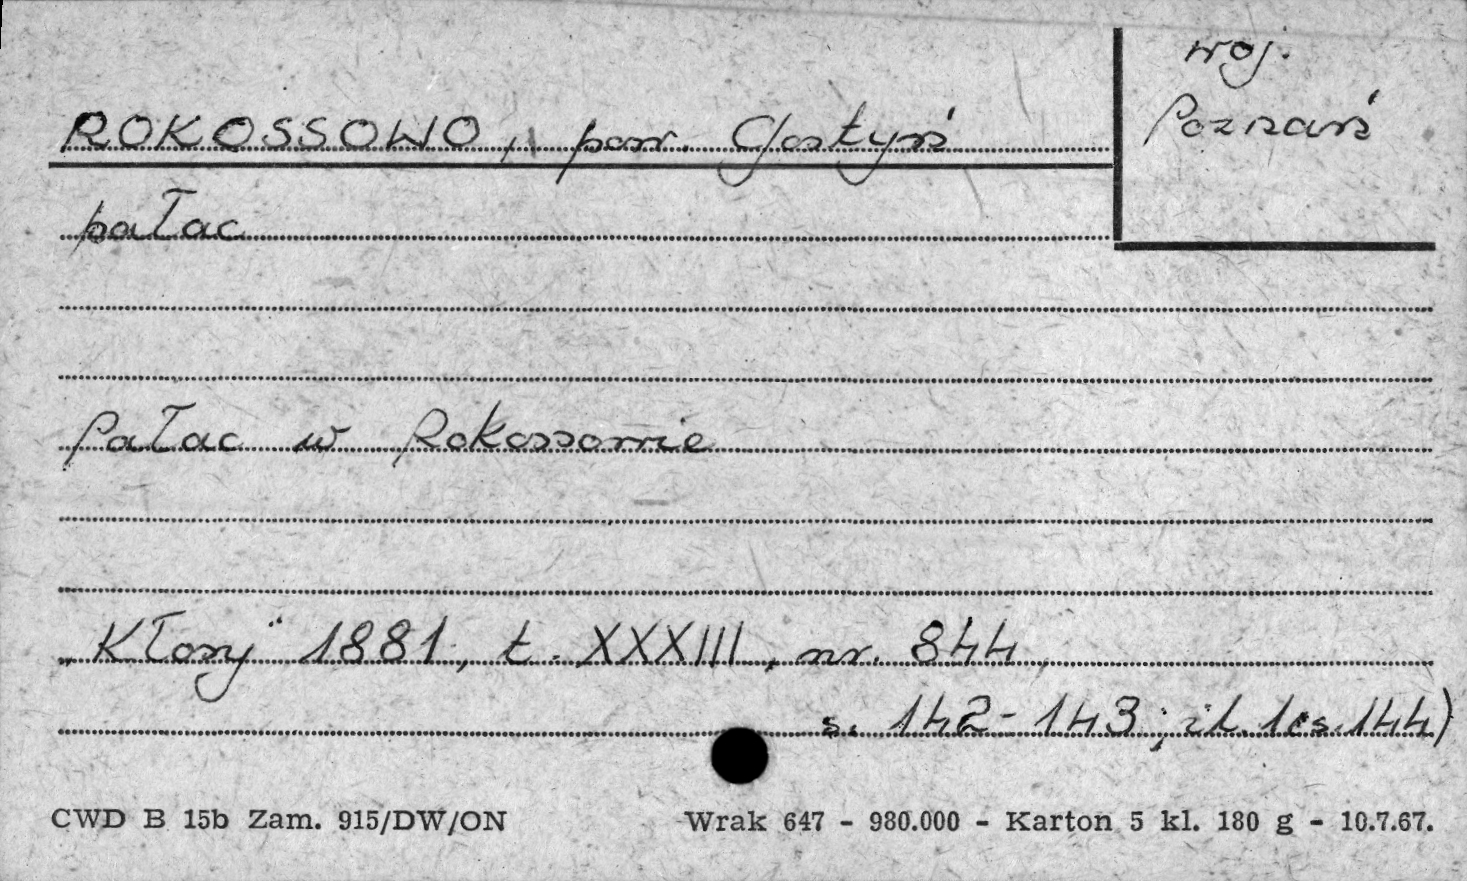 woj.
Poznań
ROKOSSOWO, pow. Gostyń
pałac
Pałac w Rokossowie
„Kłosy" 1881, t. XXXIII, nr. 844,
s. 142-143; il. 1(s.144)
CWD B 15b Zam. 915/DW/ON Wrak 647 - 980.000 - Karton 5 kl. 180 g - 10.7.67.